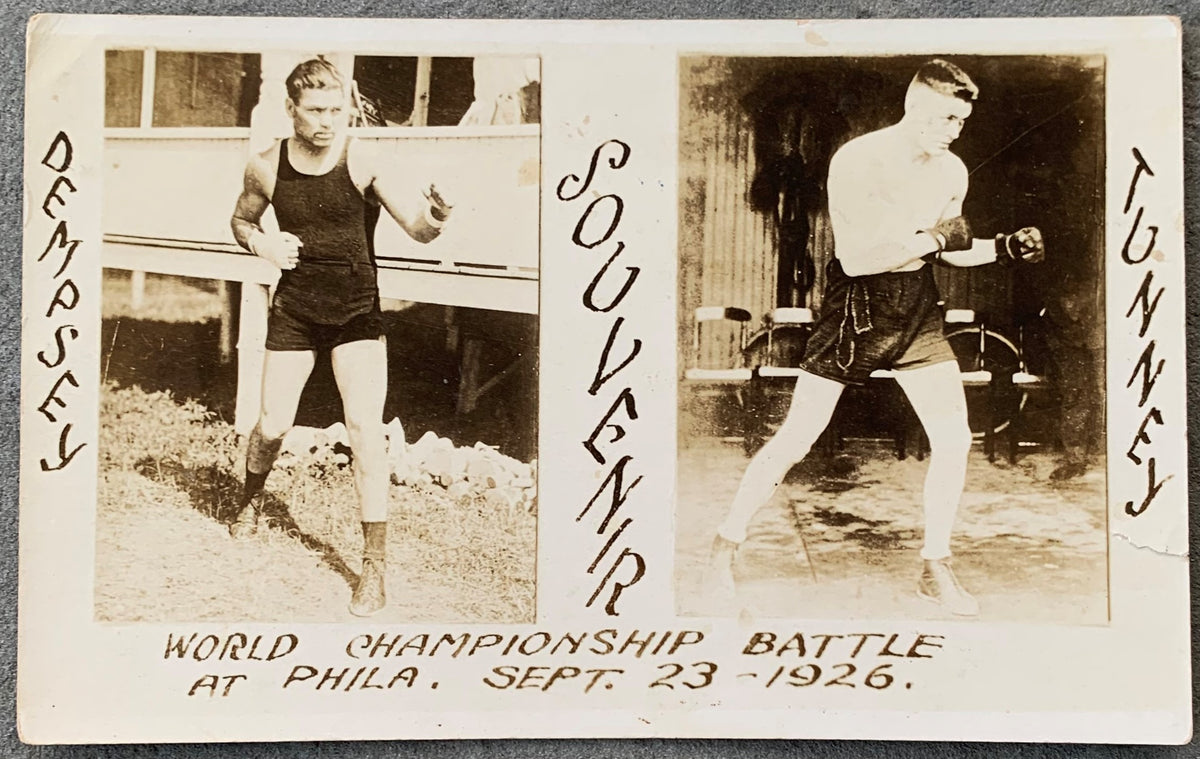 DEMPSEY
SOUVENIR
TUNNEY
WORLD CHAMPIONSHIP BATTLE
AT PHILA. SEPT. 23-1926.